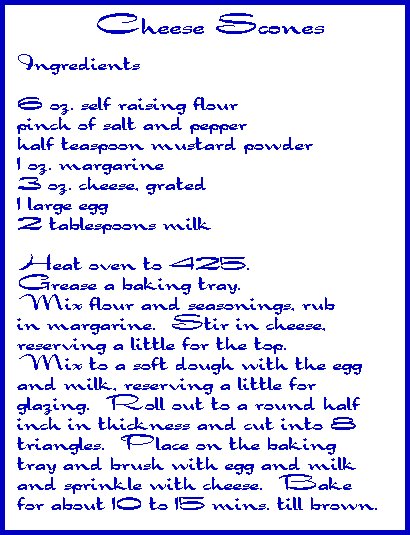 Cheese Scones
Ingredients
6 oz. self raising flour
pinch of salt and pepper
half teaspoon mustard powder
1 oz. margarine
3 oz. cheese, grated
1 large egg
2 tablespoons milk
Heat oven to 425.
Grease a baking tray.
Mix flour and seasonings, rub
in margarine. Stir in cheese,
reserving a little for the top.
Mix to a soft dough with the egg
and milk, reserving a little for
glazing. Roll out to a round half
inch in thickness and cut into 8
triangles. Place on the baking
tray and brush with egg and milk
and sprinkle with cheese. Bake
for about 10 to 15 mins. till brown.